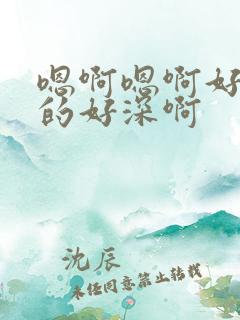 嗯啊嗯啊好
的好深啊
沈辰
未经同意禁止转载